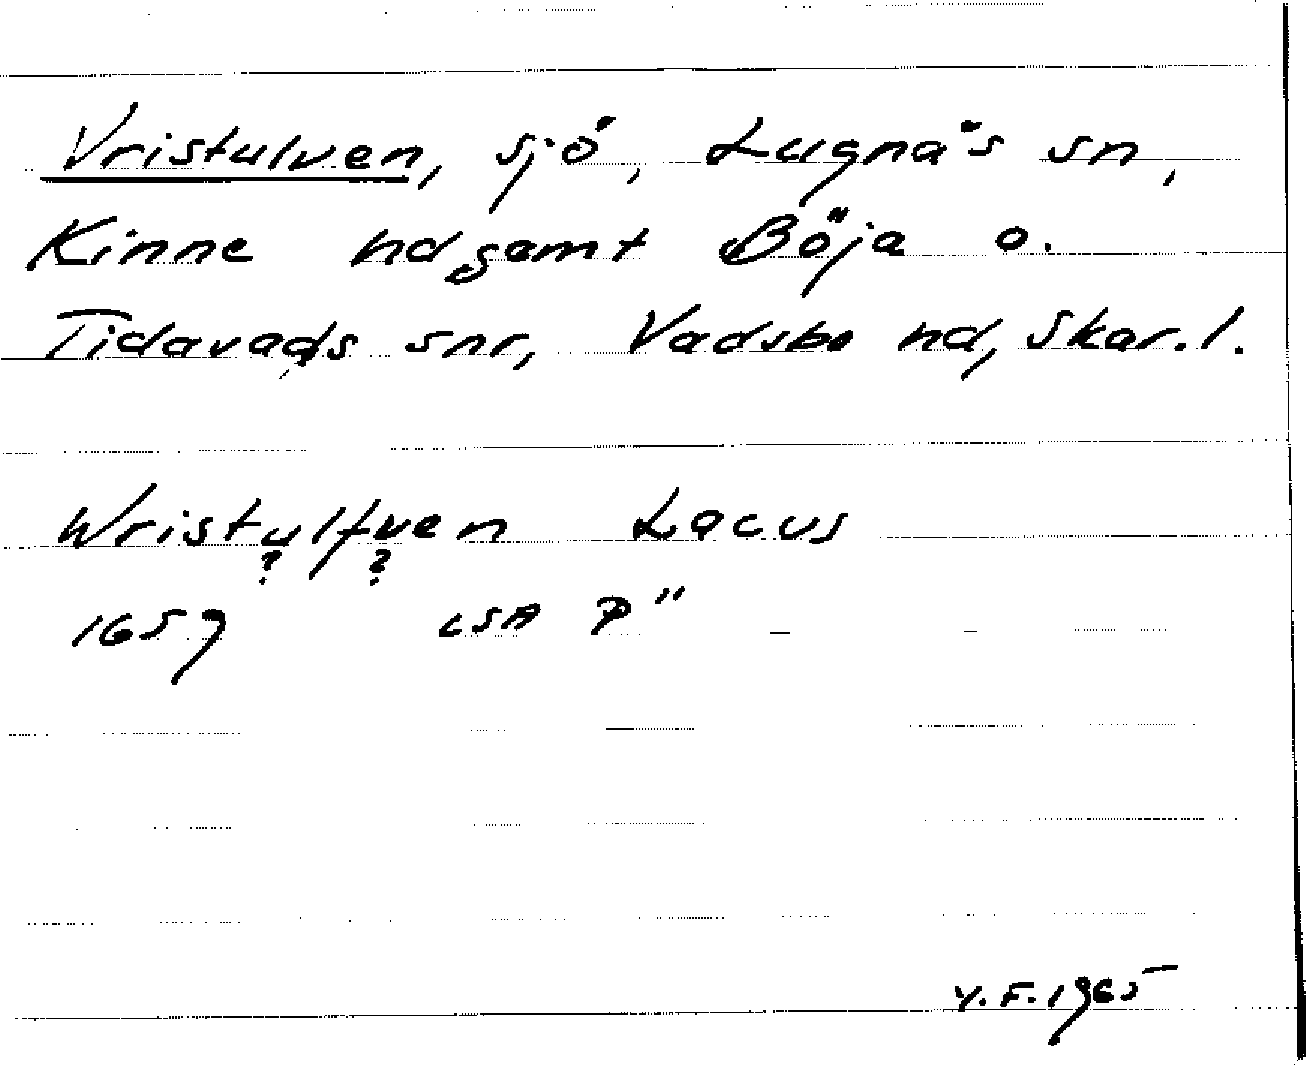 Vristulven, sjö, Lugnäs sn,
Kinne hd, samt Böja o.
Tidavads snr, Vadsbo hd, Skar. l.
Wristulfven Lacus
? ?
1659 LSA P"
Y. F. 1965